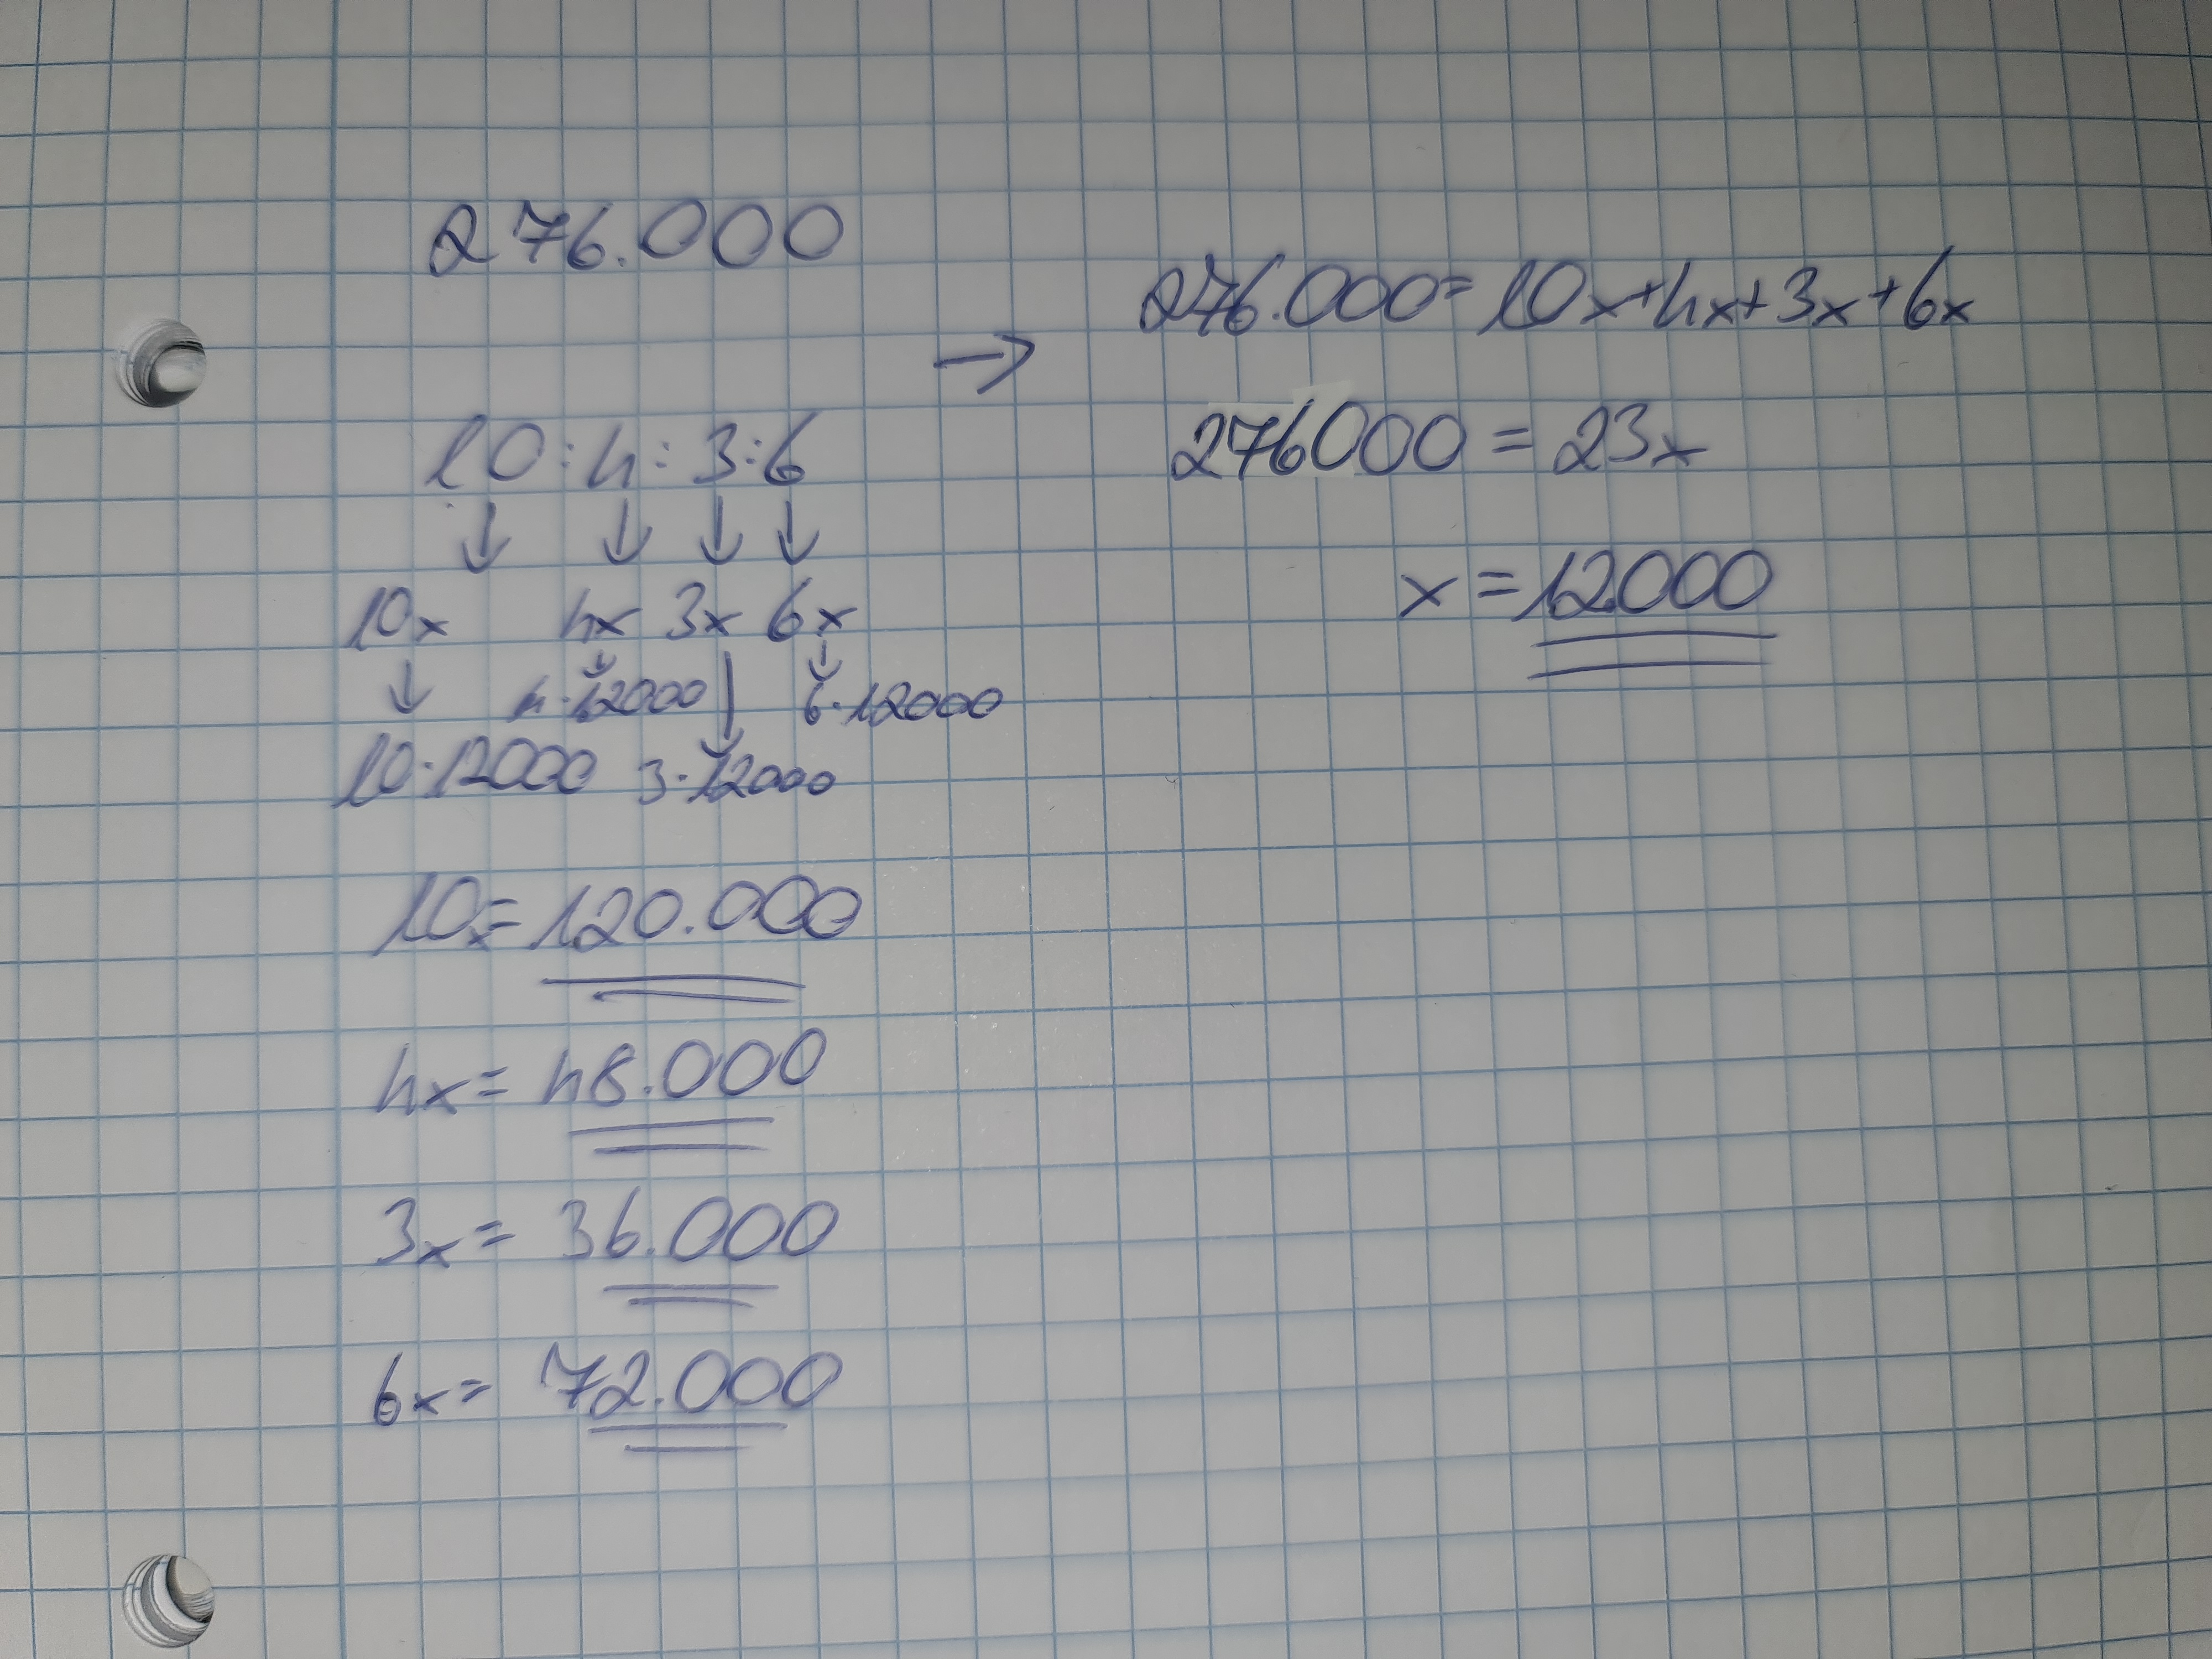 276.000
10 : 4 : 3 : 6
↓ ↓ ↓ ↓
10x 4x 3x 6x
↓ ↓ ↓ ↓
4·12000 6·12000
10·12000 3·12000
10x = 120.000
4x = 48.000
3x = 36.000
6x = 72.000
→ 276.000 = 10x + 4x + 3x + 6x
276000 = 23x
x = 12000